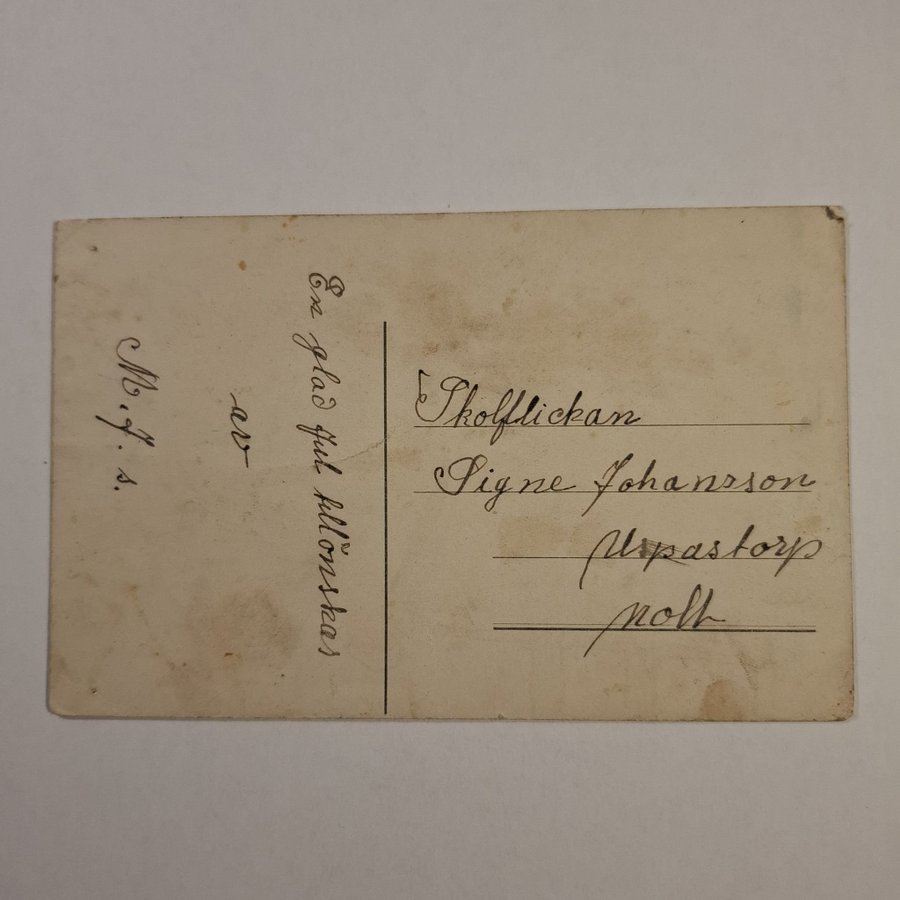 En glad Jul tillönskas
av
M. J. s.
Skolflickan
Signe Johansson
Nolt